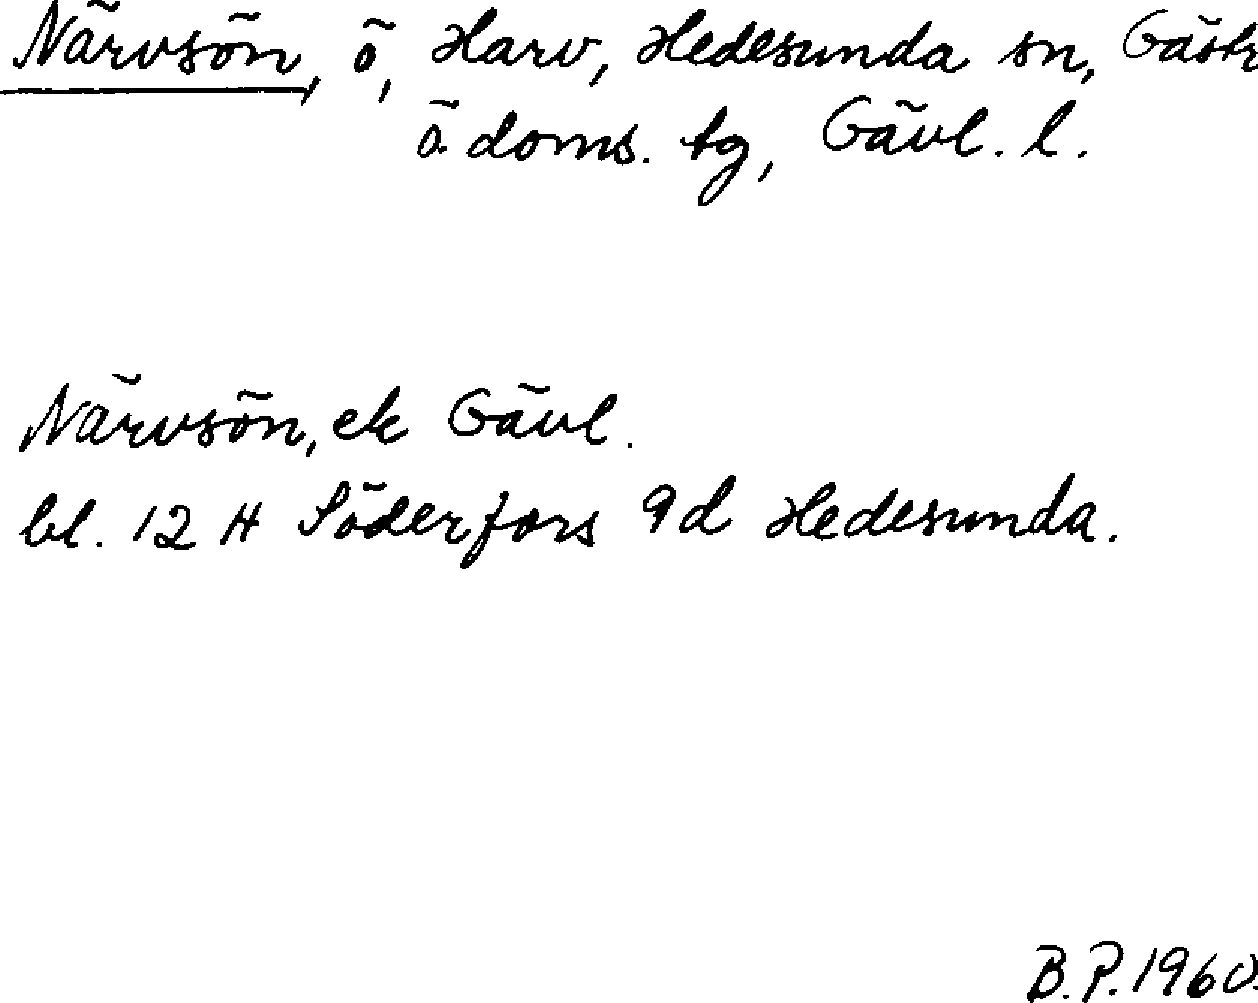 Närvsön, ö, Harv, Hedesunda sn, Gästr
ö. doms. tg, Gävl. l.
Närvsön, ek Gävl.
bl. 12 H Söderfors 9d Hedesunda.
B.P. 1960.